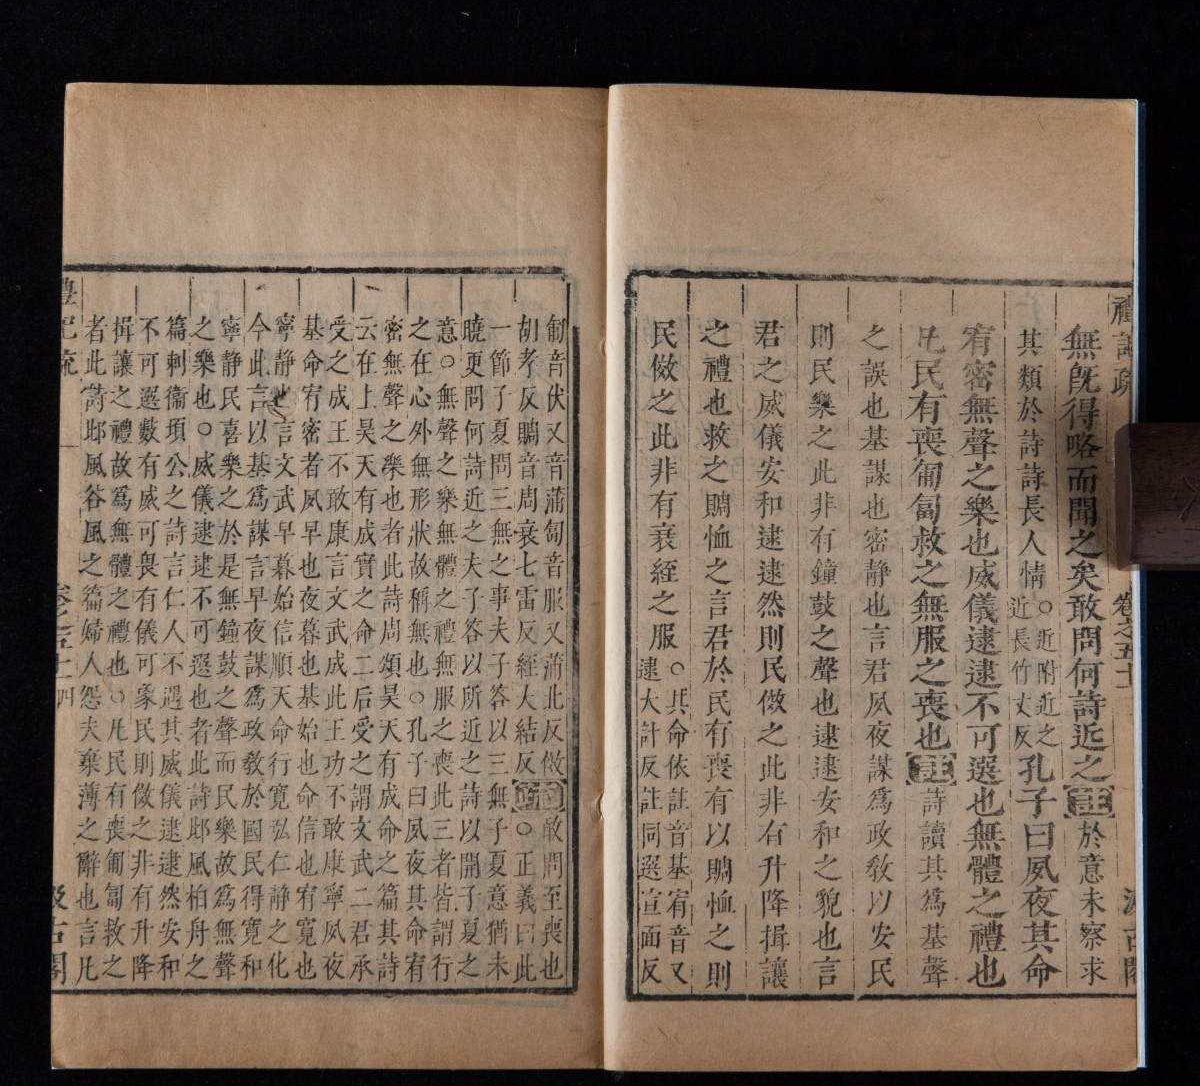 禮記疏 卷之五十一 汲古閣
無既得略而聞之矣敢問何詩近之註於意未察求
其類於詩詩長人情○近附近之近長竹丈反孔子曰夙夜其命
宥密無聲之樂也威儀逮逮不可選也無體之禮也
凡民有喪匍匐救之無服之喪也註詩讀其爲基聲
之誤也基謀也密静也言君夙夜謀爲政敎以安民
則民樂之此非有鐘鼓之聲也逮逮安和之貌也言
君之威儀安和逮逮然則民傚之此非有升降揖讓
之禮也救之賙恤之言君於民有喪有以賙恤之則
民傚之此非有衰絰之服○其命依註音基宥音又逮大計反註同選宣面反
匍音伏又音蒲匐音服又蒲北反傚
胡孝反賙音周衰七雷反絰大結反疏敢問至喪也○正義曰此
一節子夏問三無之事夫子荅以三無子夏意猶未
曉更問何詩近之夫子荅以所近之詩以開子夏之
意○無聲之樂無體之禮無服之喪此三者皆謂行
之在心外無形狀故稱無也○孔子曰夙夜其命宥
密無聲之樂也者此詩周頌昊天有成命之篇其詩
云在上昊天有成實之命二后受之謂文武二君承
受之成王不敢康言文武成此王功不敢康寧夙夜
基命宥密者夙早也夜暮也基始也命信也宥寛也
寧静也言文武早暮始信順天命行寛弘仁静之化
今此言以基爲謀言早夜謀爲政敎於國民得寛和
寧静民喜樂之於是無鐘鼓之聲而民樂故爲無聲
之樂也○威儀逮逮不可選也者此詩邶風柏舟之
篇刺衞頃公之詩言仁人不遇其威儀逮逮然安和
不可選數有威可畏有儀可象民則傚之非有升降
揖讓之禮故爲無體之禮也○凡民有喪匍匐救之
者此詩邶風谷風之篇婦人怨夫棄薄之辭也言凡
禮記疏 卷之五十一 四 汲古閣